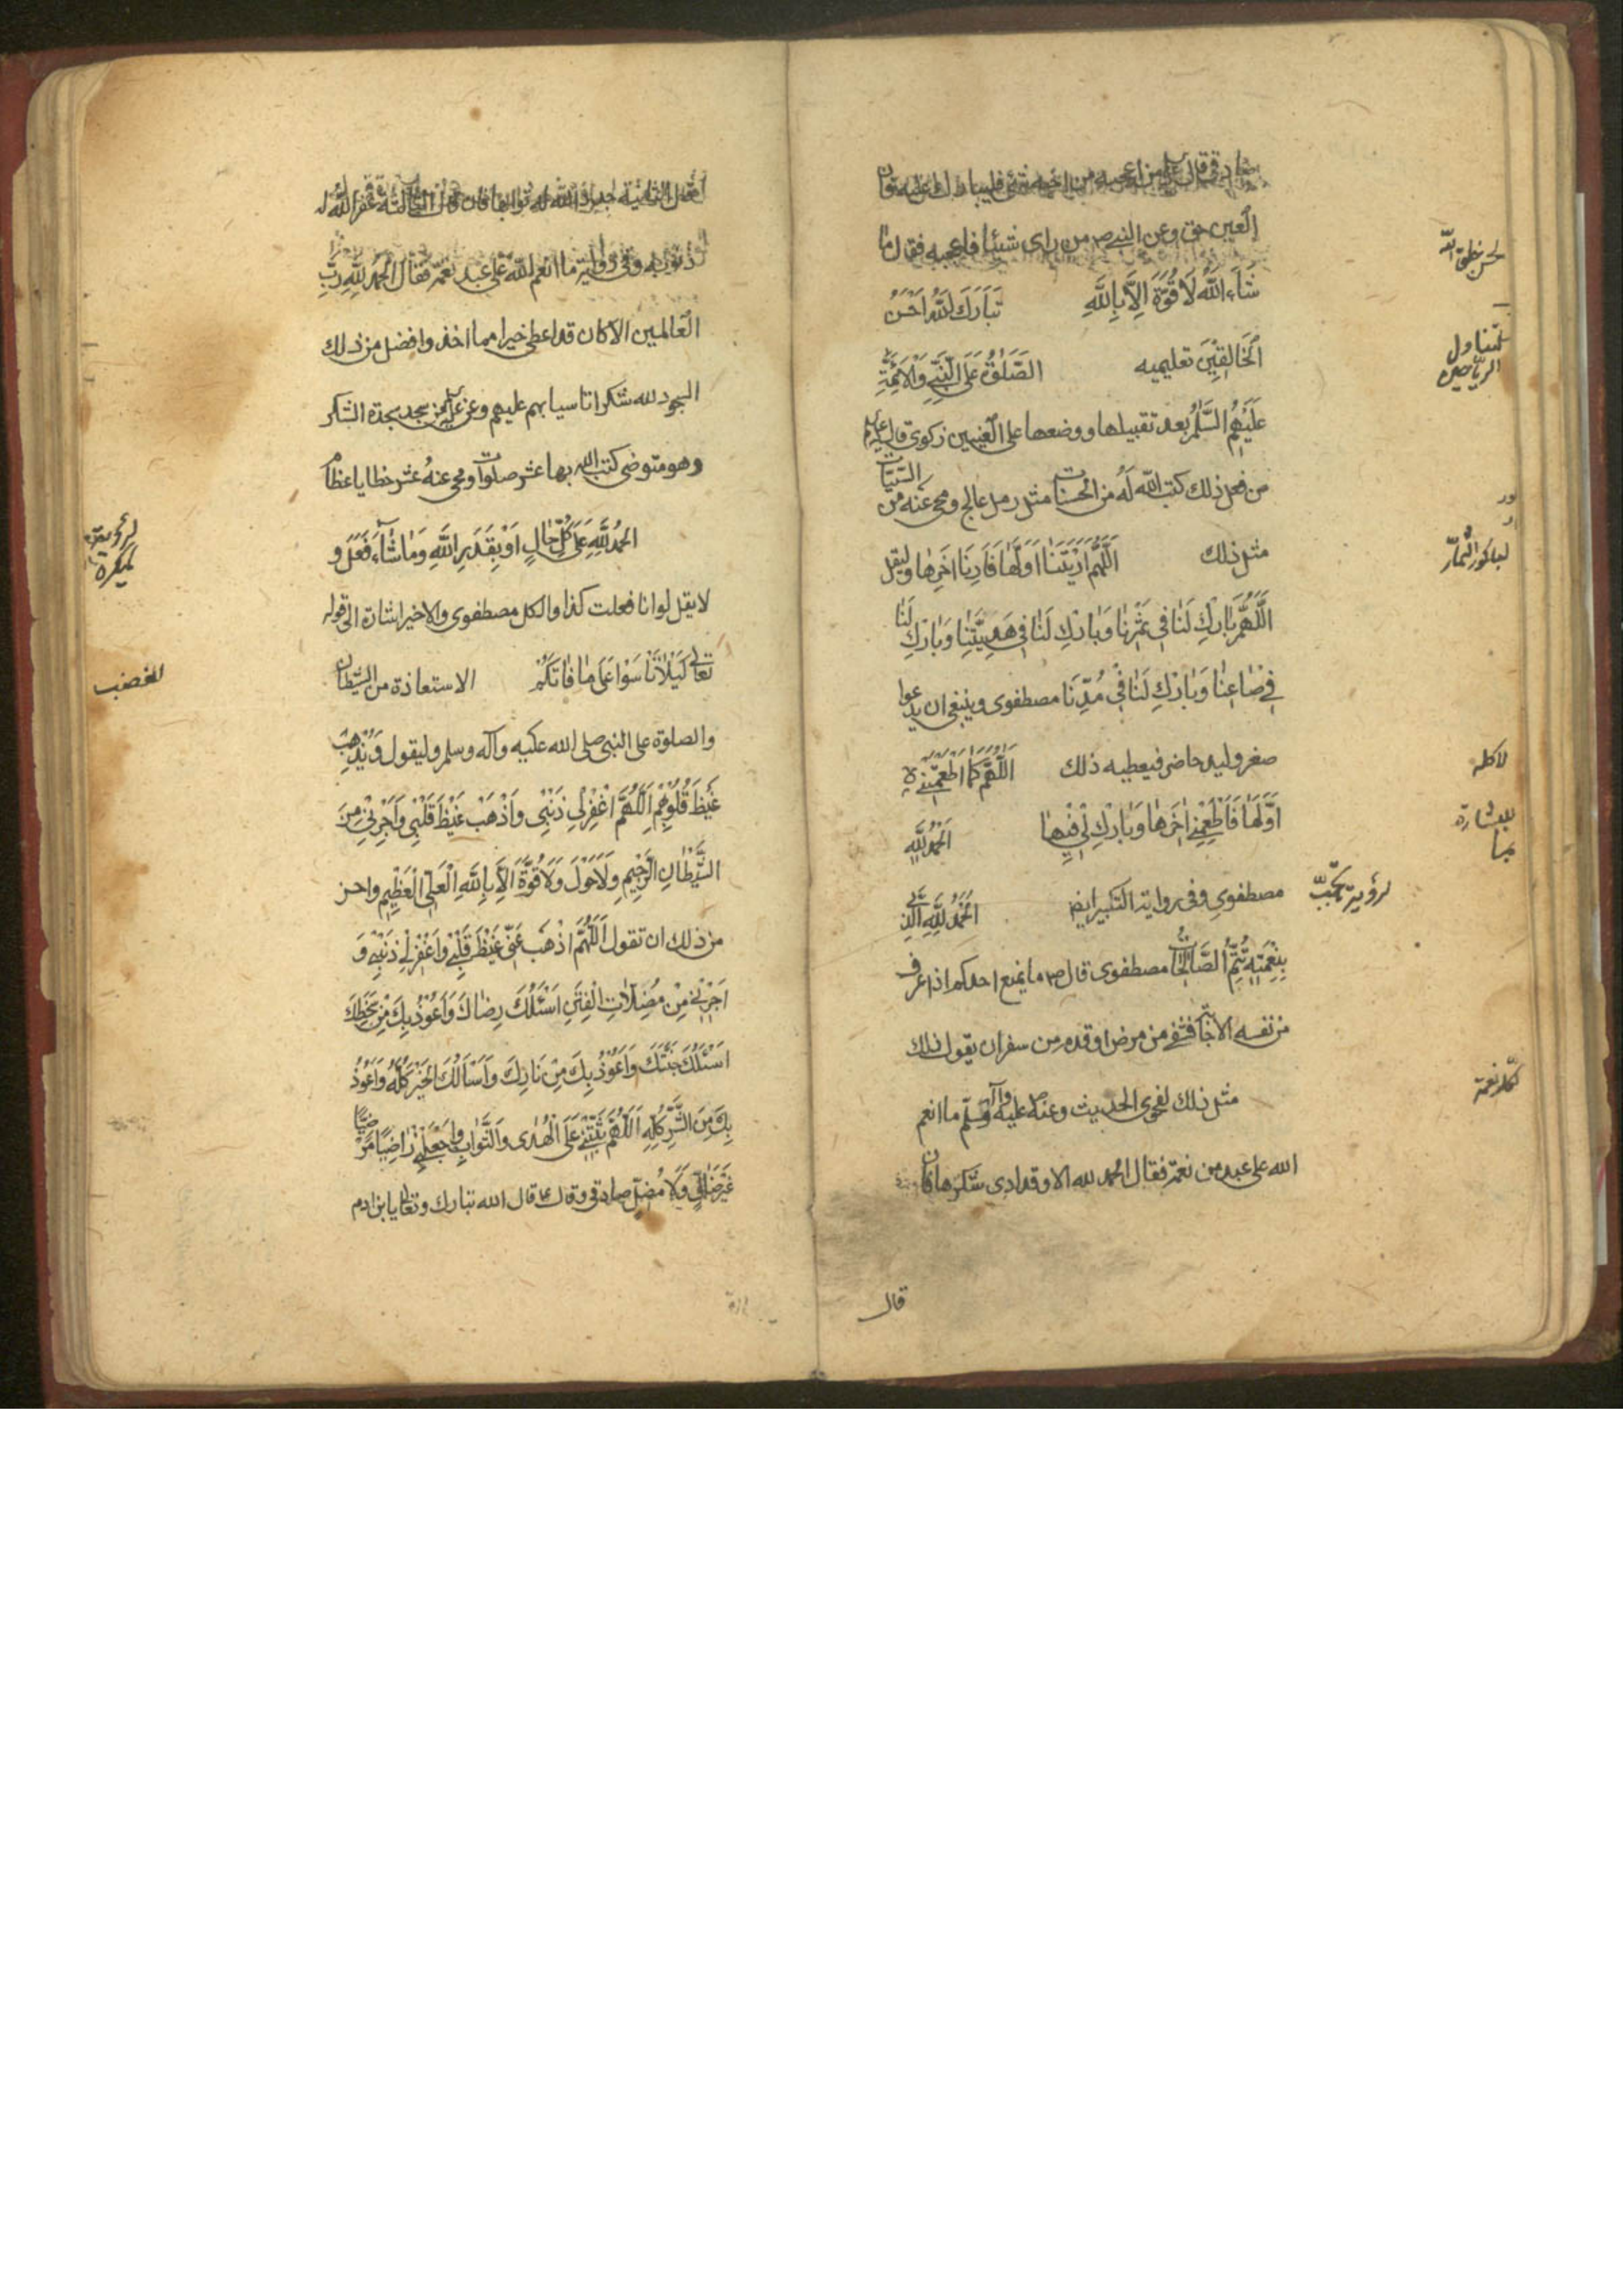 صادقي قال ع من اعجبه من اخيه شئ فليبارك عليه فان
العين حق وعن النبي ص من راى شيئا فاعجبه فقال ما
لحسن خلق الله
شَاءَ اللّهُ لَا قُوَّةَ اِلَّا بِاللّهِ تَبَارَكَ اللّهُ اَحْسَنُ
لتناول الرياحين
اَلْخَالِقِيْنَ تعليميه الصَّلٰوةُ عَلَى النَّبِيِّ وَالْاَئِمَّةِ
عَلَيْهِمُ السَّلٰمُ بعد تقبيلها ووضعها على العينين زكوى قال عليه
من فعل ذلك كتب الله له من الحسنات مثل رمل عالج ومحى عنه من السيئات
لباكور الثمار
مثل ذلك اَللّهُمَّ اَرَيْتَنَا اَوَّلَهَا فَاَرِنَا اٰخِرَهَا وليقل
اَللّهُمَّ بَارِكْ لَنَا فِي ثَمَرِنَا وَبَارِكْ لَنَا فِي مَدِيْنَتِنَا وَبَارِكْ لَنَا
فِي صَاعِنَا وَبَارِكْ لَنَا فِي مُدِّنَا مصطفوى وينبغى ان يدعوا
لاكله
صغر وليد حاضر فيعطيه ذلك اَللّهُمَّ كَمَا اَطْعَمْتَنِي
للبشارة
اَوَّلَهَا فَاَطْعِمْنِي اٰخِرَهَا وَبَارِكْ لِي فِيْهَا اَلْحَمْدُ لِلّهِ
لرؤية
مصطفوى وفى رواية التكبير ايض اَلْحَمْدُ لِلّهِ الَّذِي
بِنِعْمَتِهِ تَتِمُّ الصَّالِحَاتُ مصطفوى قال ص ما يمنع احدكم اذا عرف
من نفسه الاجابة فشفى من مرض او قدم من سفر ان يقول ذلك
لكل نعمة
مثل ذلك لفحوى الحديث وعنه ص عليه وآله وسلم ما انعم
الله على عبد من نعمة فقال الحمد لله الا وقد ادى شكرها فان
قال
قال الثانية جدد الله له ثوابها فان قال الثالثة غفر الله له
ذنوبه وفى رواية ما انعم الله على عبد نعمة فقال الحمد لِلّهِ رَبِّ
العالمين الا كان قد اعطى خيرا مما اخذ وافضل من ذلك
السجود لله شكرا تاسيا بهم عليهم وعن من سجد سجدة الشكر
وهو متوضى كتب الله بها عشر صلوات ومحى عنه عشر خطايا عظام
الحَمْدُ لِلّهِ عَلَى كُلِّ حَالٍ اَوْ بِقَدَرِ اللّهِ وَمَا شَاءَ فَعَلَ و
لا يقل لو انا فعلت كذا والكل مصطفوى والاخير اشارة الى قوله
للغضب
تعالى لِكَيْلَا تَأْسَوْا عَلَى مَا فَاتَكُمْ الاستعاذة من الشيطان
والصلوة على النبى صلى الله عليه وآله وسلم وليقول وَيُذْهِبْ
غَيْظَ قُلُوْبِهِمْ اَللّهُمَّ اغْفِرْ لِي ذَنْبِي وَاَذْهِبْ غَيْظَ قَلْبِي وَاَجِرْنِي مِنَ
الشَّيْطَانِ الرَّجِيْمِ وَلَا حَوْلَ وَلَا قُوَّةَ اِلَّا بِاللّهِ الْعَلِيِّ الْعَظِيْمِ واحسن
من ذلك ان تقول اَللّهُمَّ اَذْهِبْ عَنِّي غَيْظَ قَلْبِي وَاغْفِرْ لِي ذَنْبِي وَ
اَجِرْنِي مِنْ مُضِلَّاتِ الْفِتَنِ اَسْئَلُكَ رِضَاكَ وَاَعُوْذُ بِكَ مِنْ سَخَطِكَ
اَسْئَلُكَ جَنَّتَكَ وَاَعُوْذُ بِكَ مِنْ نَارِكَ وَاَسْاَلُكَ الْخَيْرَ كُلَّهُ وَاَعُوْذُ
بِكَ مِنَ الشَّرِّ كُلِّهِ اَللّهُمَّ ثَبِّتْنِي عَلَى الْهُدٰى وَالصَّوَابِ وَاجْعَلْنِي رَاضِيًا مَرْضِيًّا
غَيْرَ ضَالٍّ وَلَا مُضِلٍّ صادقى وقال ع قال الله تبارك وتعالى يا بن ادم